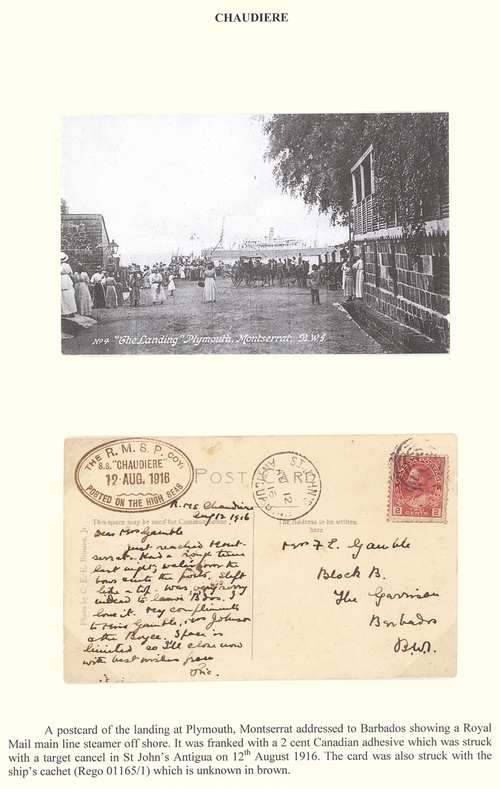 CHAUDIERE
No 4 "The Landing" Plymouth, Montserrat, B.W.I
THE R.M.S.P. COY.
S.S. "CHAUDIERE"
12 AUG. 1916
POSTED ON THE HIGH SEAS
POST CARD
ST JOHN'S
AU 12
16
ANTIGUA
CANADA POSTAGE
2 CENTS 2
R.M.S Chaudiere
Aug 12 1916
This space may be used for Communication
The Address to be written
here
Photo by C. E. E. Browne, Jr.
Dear Mrs Gamble
just reached Mont-
serrat. Had a rough time
last night, water over the
bows into the ports. Slept
like a top. Was very sorry
indeed to leave Bdos. I
love it. My compliments
to Miss Gamble, Mrs Johnson
& the Boyce. Space is
limited so I'll close now
with best wishes from
Mrs F L. Gamble
Block B.
The Garrison
Barbados
B.W.I.
A postcard of the landing at Plymouth, Montserrat addressed to Barbados showing a Royal
Mail main line steamer off shore. It was franked with a 2 cent Canadian adhesive which was struck
with a target cancel in St John's Antigua on 12th August 1916. The card was also struck with the
ship's cachet (Rego 01165/1) which is unknown in brown.